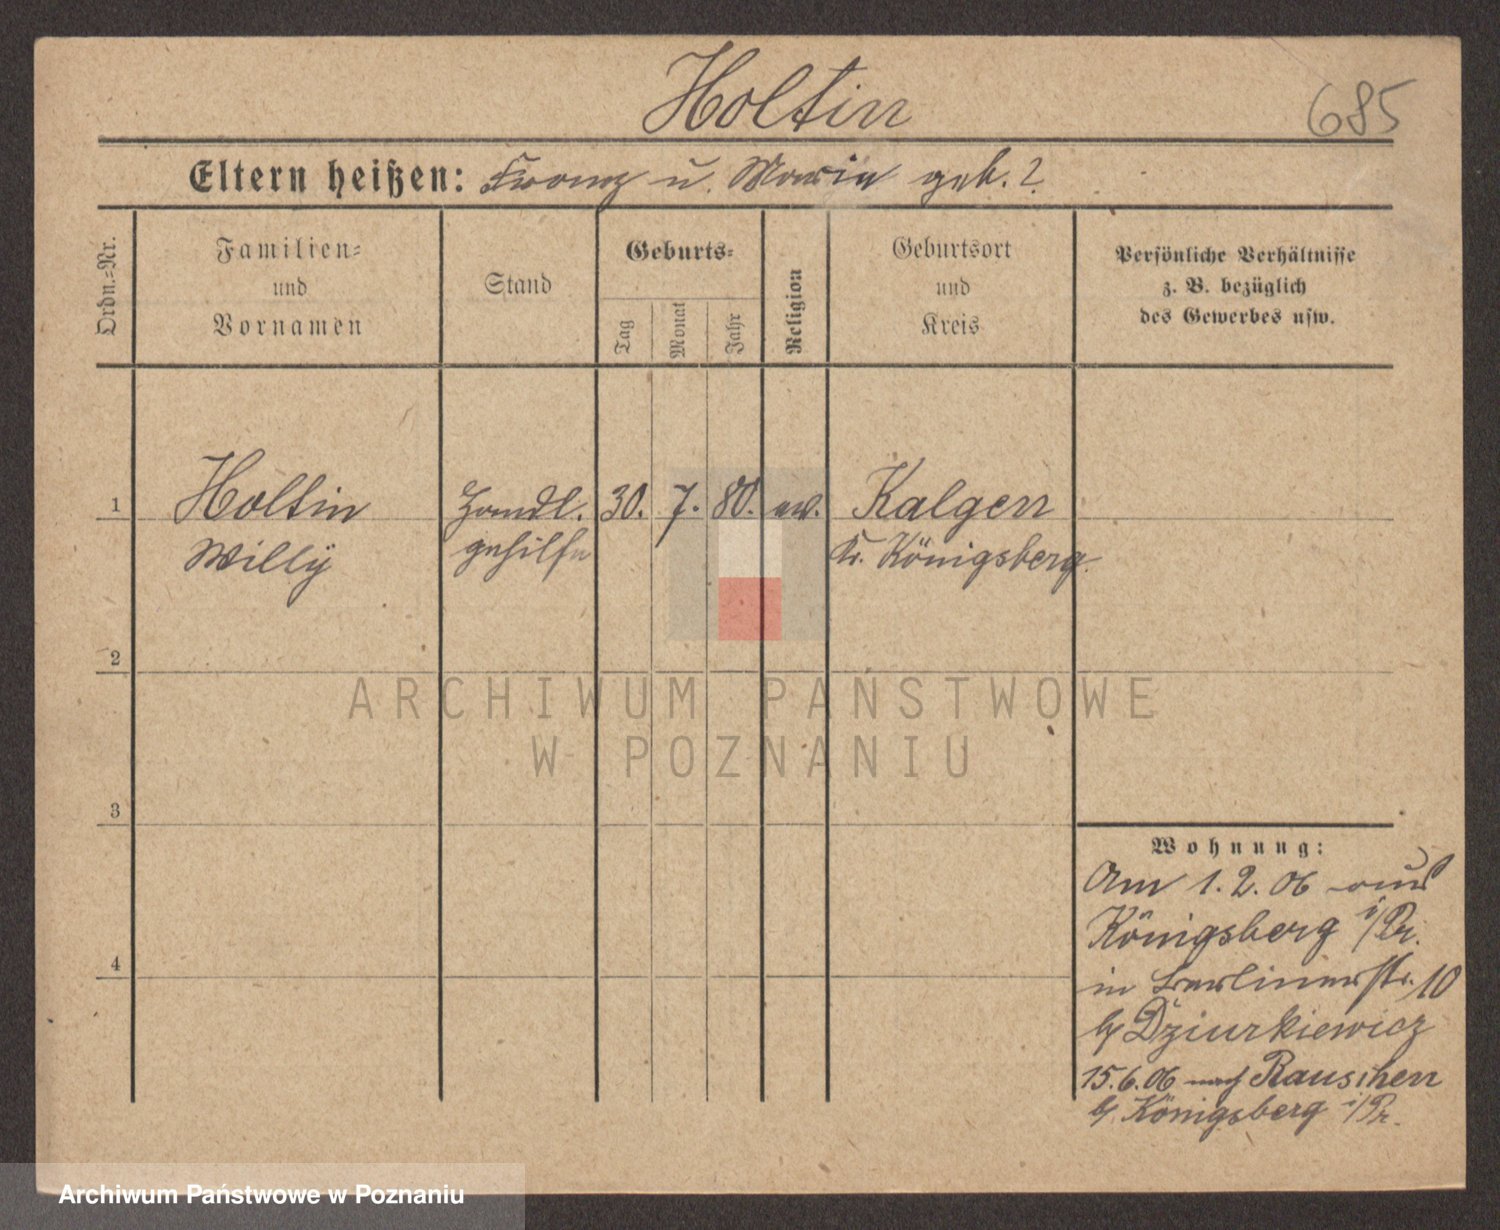 Holtin
685
Eltern heißen: Franz u. Marie geb. ?
Ordn.=Nr.
Familien=
und
Vornamen
Stand
Geburts=
Tag
Monat
Jahr
Religion
Geburtsort
und
Kreis
Persönliche Verhältnisse
z. B. bezüglich
des Gewerbes usw.
1
Holtin
Willÿ
Handl.
gehilfe
30. 7. 80. ev.
Kalgen
Kr. Königsberg.
2
3
4
Wohnung:
Am 1. 2. 06 aus
Königsberg i/Pr.
in Berlinerstr. 10
b/ Dziurkiewicz
15. 6. 06 nach Rauschen
b/ Königsberg i/Pr.
ARCHIWUM PAŃSTWOWE
W POZNANIU
Archiwum Państwowe w Poznaniu